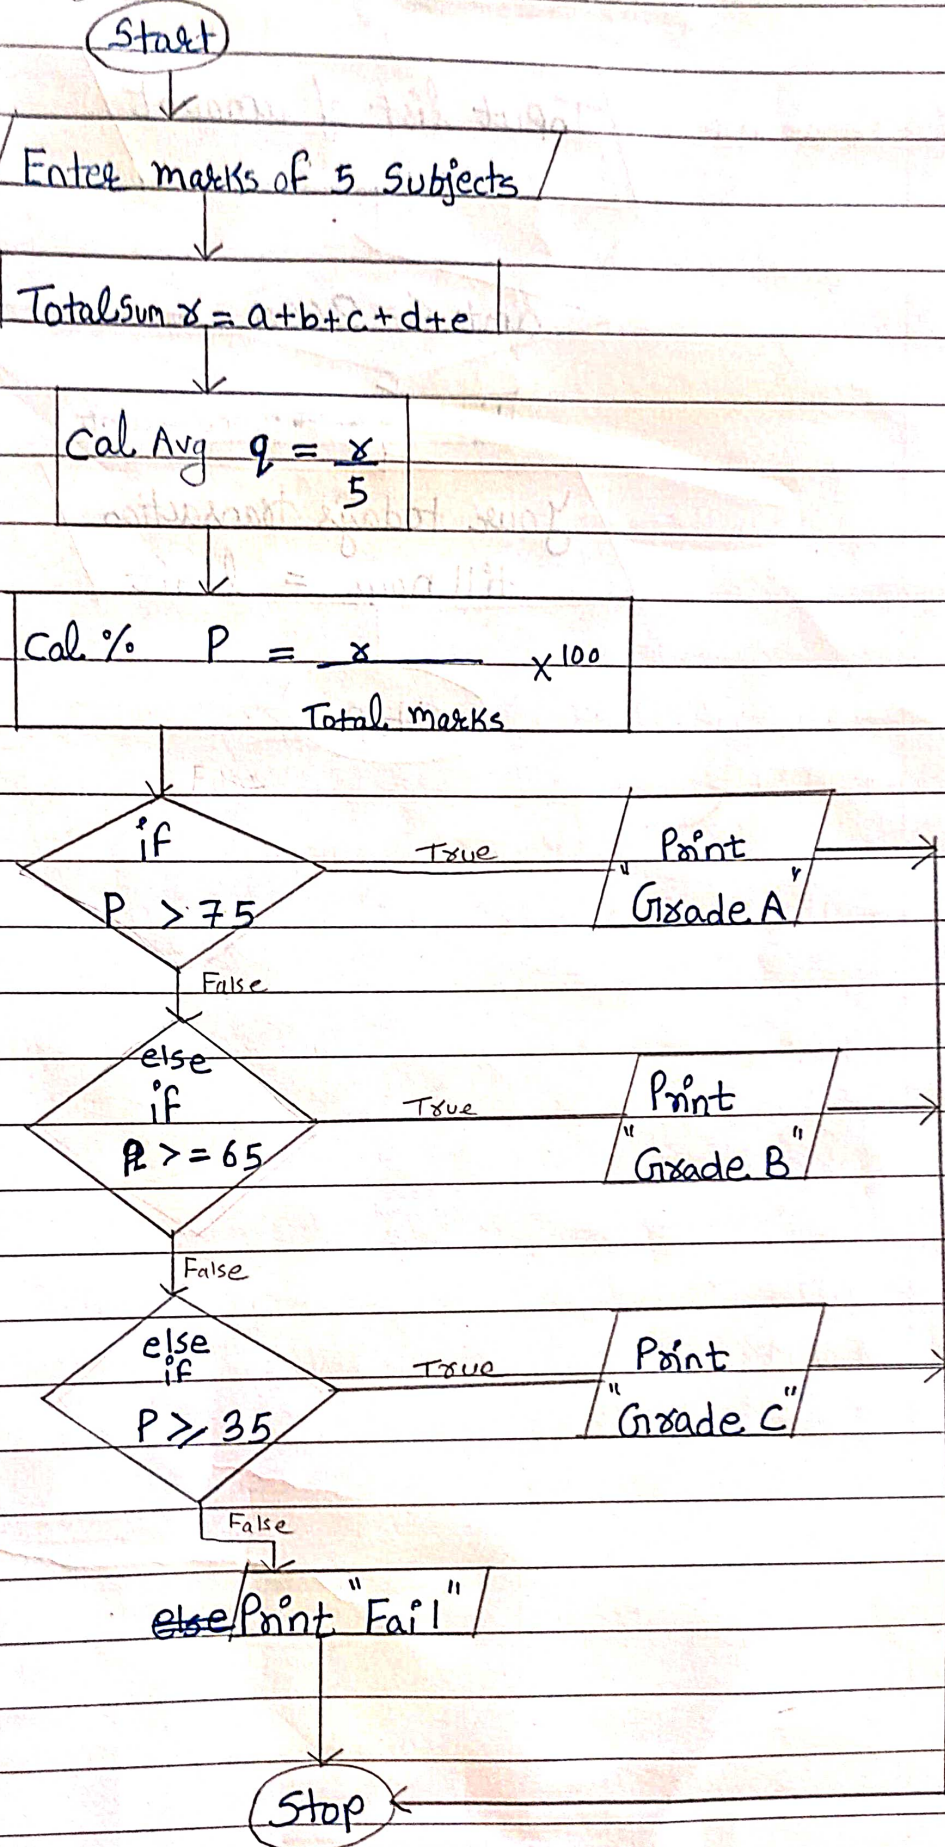 Start
Enter marks of 5 Subjects
Total Sum r = a+b+c+d+e
Cal Avg q = r
5
Cal % P = r x 100
Total marks
if
P > 75
True
Print
"Grade A"
False
else
if
P >= 65
True
Print
"Grade B"
False
else
if
P ⩾ 35
True
Print
"Grade C"
False
else Print "Fail"
Stop